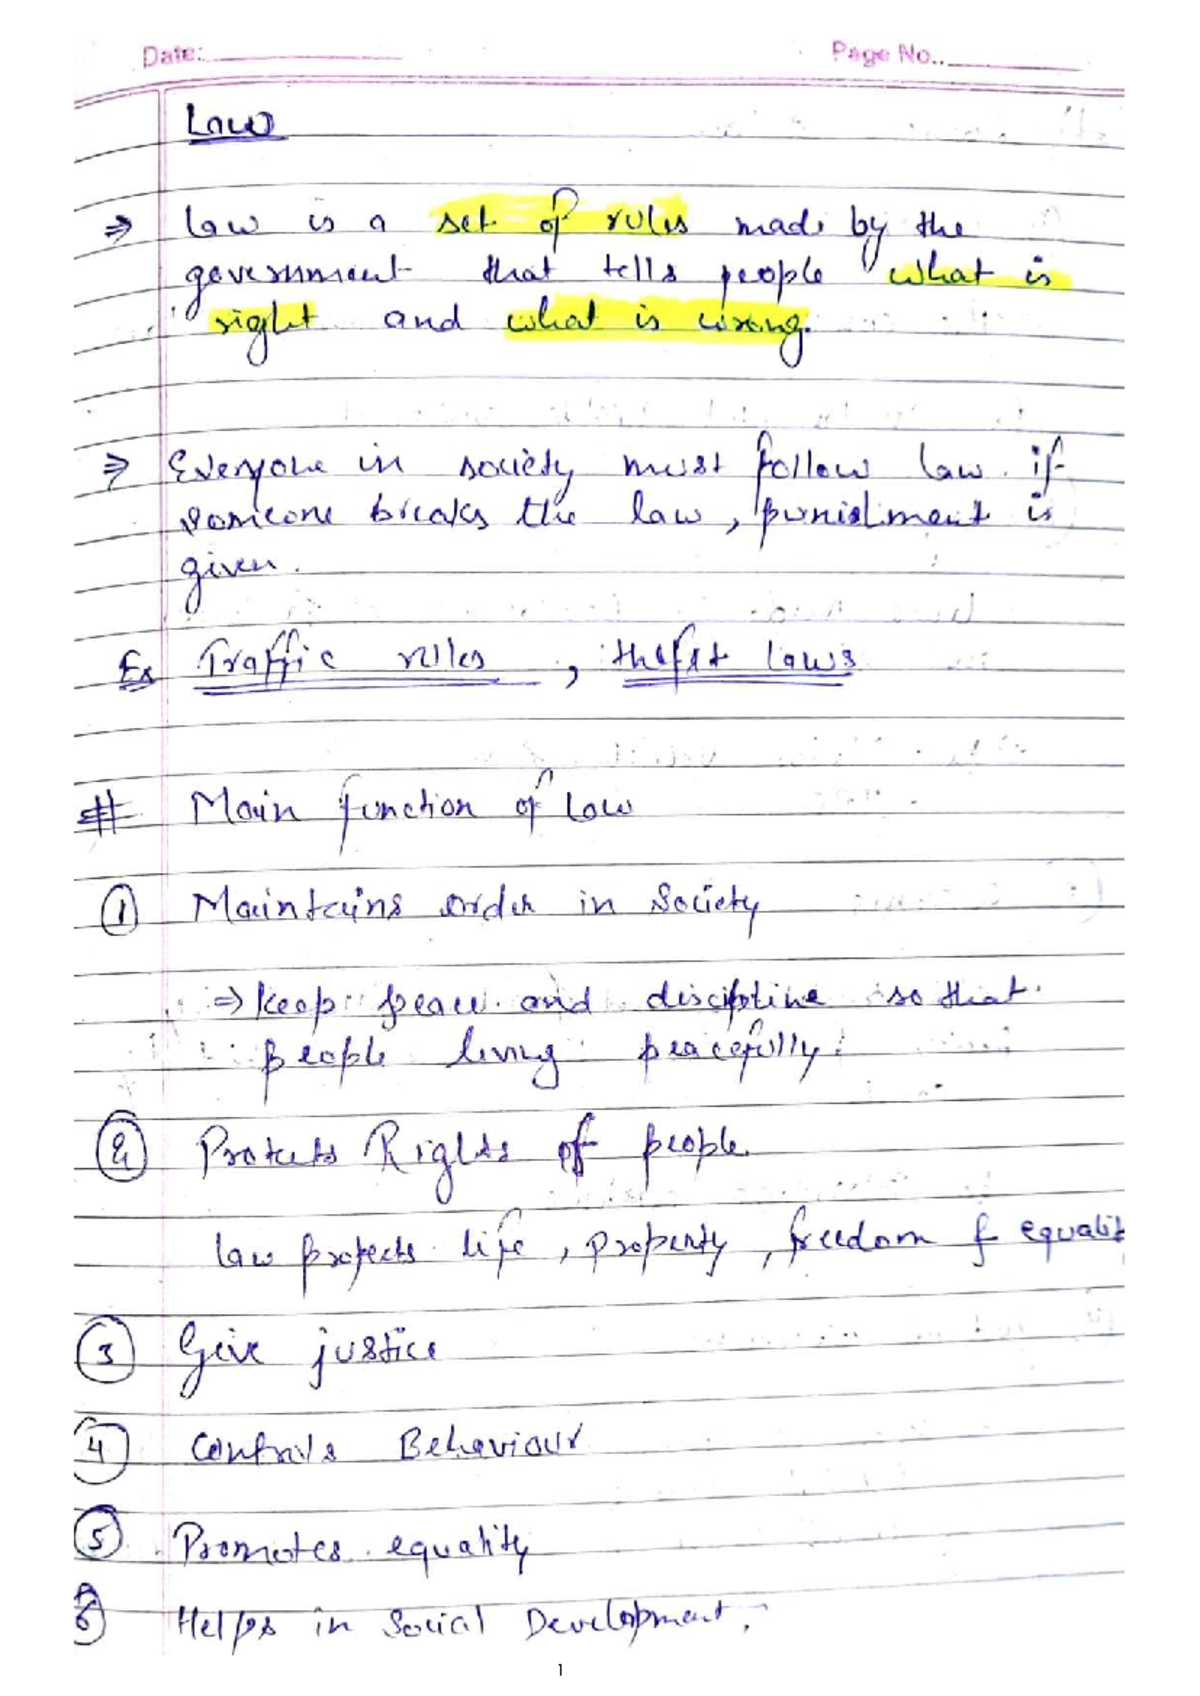 Date:
Page No..
Law
⇒ law is a set of rules made by the
government that tells people what is
right and what is wrong.
⇒ Everyone in society must follow law. if
someone breaks the law, punishment is
given.
Ex Traffic rules, theft laws
# Main function of law
① Maintains order in Society
⇒ keep peace and discipline so that
people living peacefully.
② Protects Rights of people.
law protects life, property, freedom & equalit
③ Give justice
④ Controls Behaviour
⑤ Promotes equality
⑥ Helps in Social Development.
1